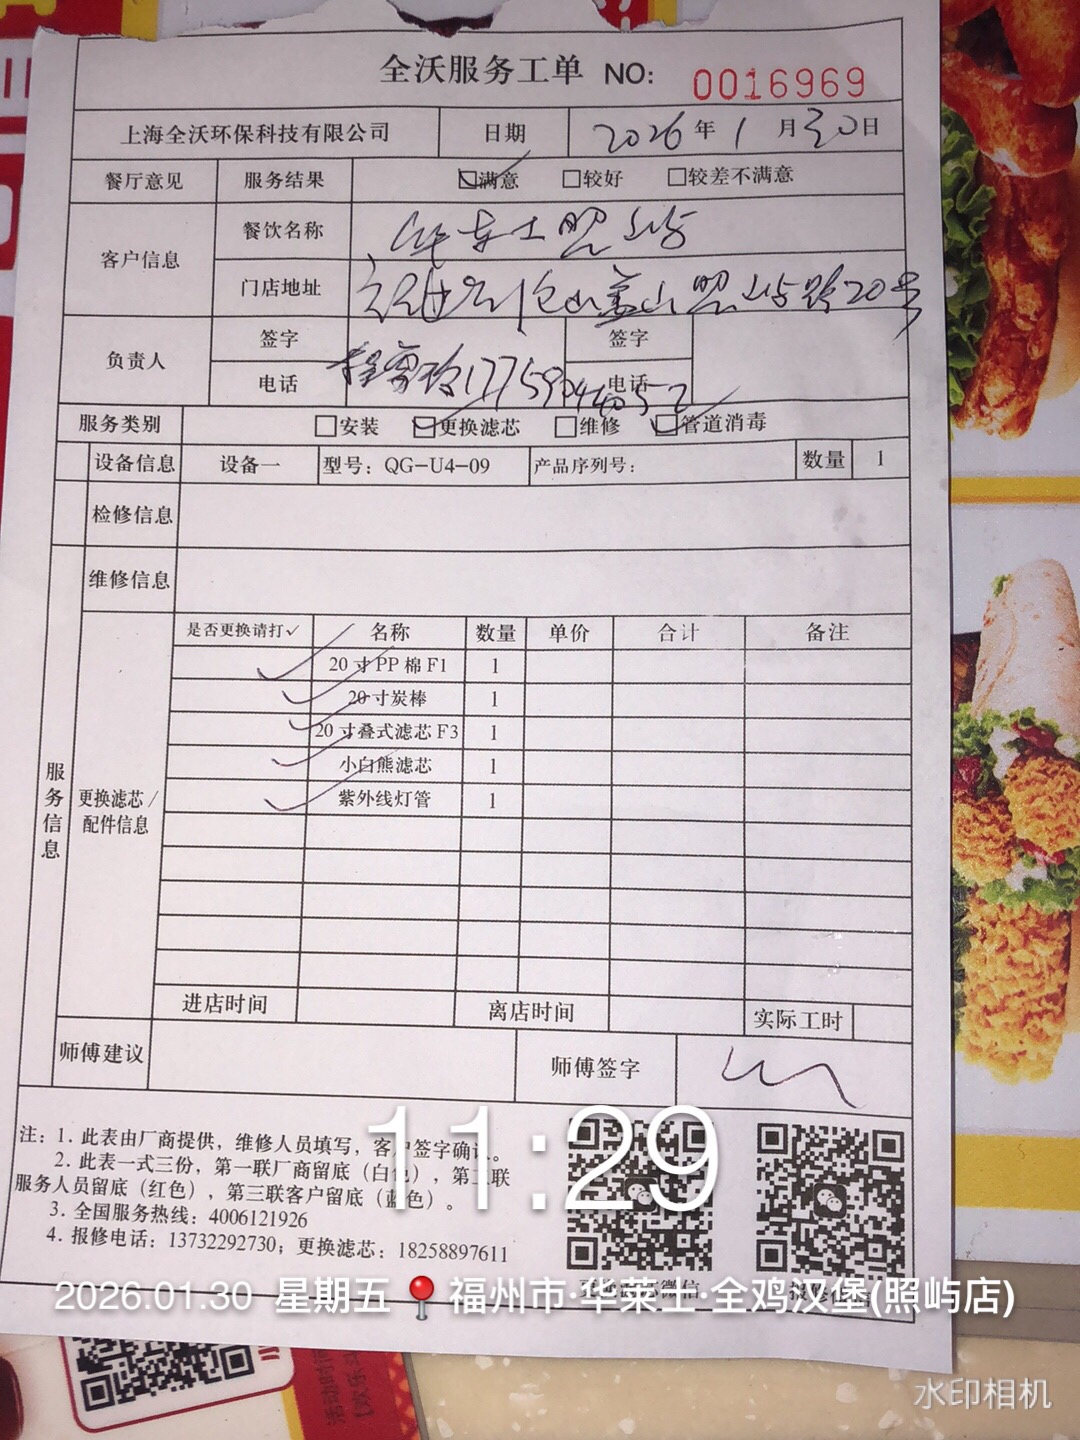 全沃服务工单 NO: 0016969
上海全沃环保科技有限公司 日期 2026年1月30日
餐厅意见 服务结果 ☑满意 □较好 □较差不满意
客户信息 餐饮名称 华莱士照屿
门店地址 福州仓山盖山照屿路20号
负责人 签字 签字
电话 电话
服务类别 □安装 ☑更换滤芯 □维修 ☑管道消毒
设备信息 设备一 型号: QG-U4-09 产品序列号: 数量 1
检修信息
维修信息
是否更换请打✓ 名称 数量 单价 合计 备注
✓ 20寸PP棉F1 1
✓ 20寸炭棒 1
✓ 20寸叠式滤芯F3 1
✓ 小白熊滤芯 1
✓ 紫外线灯管 1
服务信息
更换滤芯/
配件信息
进店时间 离店时间 实际工时
师傅建议 师傅签字
注: 1. 此表由厂商提供, 维修人员填写, 客户签字确认。
2. 此表一式三份, 第一联厂商留底 (白色), 第二联
服务人员留底 (红色), 第三联客户留底 (蓝色)。
3. 全国服务热线: 4006121926
4. 报修电话: 13732292730; 更换滤芯: 18258897611
11:29
2026.01.30 星期五 福州市·华莱士·全鸡汉堡(照屿店)
水印相机